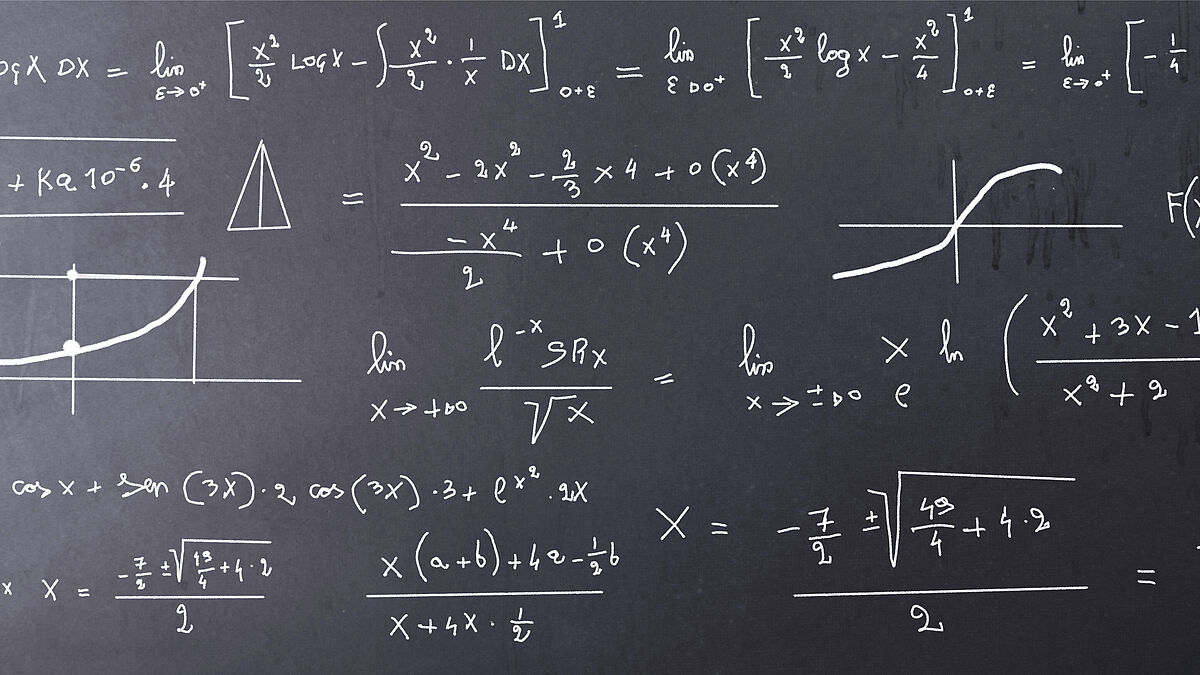 OgX DX = lim ε→0⁺ [x²/2 LOGX − ∫ x²/2 · 1/x DX]¹₀₊ε = lim ε→0⁺ [x²/2 log x − x²/4]¹₀₊ε = lim ε→0⁺ [− 1/4
+ Ka 10⁻⁶ · 4
= (x² − 2x² − 2/3 x 4 + 0(x⁴)) / (−x⁴/2 + 0(x⁴))
F(x
lim x→+∞ (e⁻ˣ SRx) / √x = lim x→±∞ x e ln ((x² + 3x − 1) / (x² + 2)
cos x + sen (3x) · 2 cos (3x) · 3 + e^x² · 2x
x X = (−7/2 ± √(49/4 + 4 · 2)) / 2
(x (a+b) + 4a − 1/2 b) / (x + 4x · 1/2)
X = (−7/2 ± √(49/4 + 4 · 2)) / 2 =